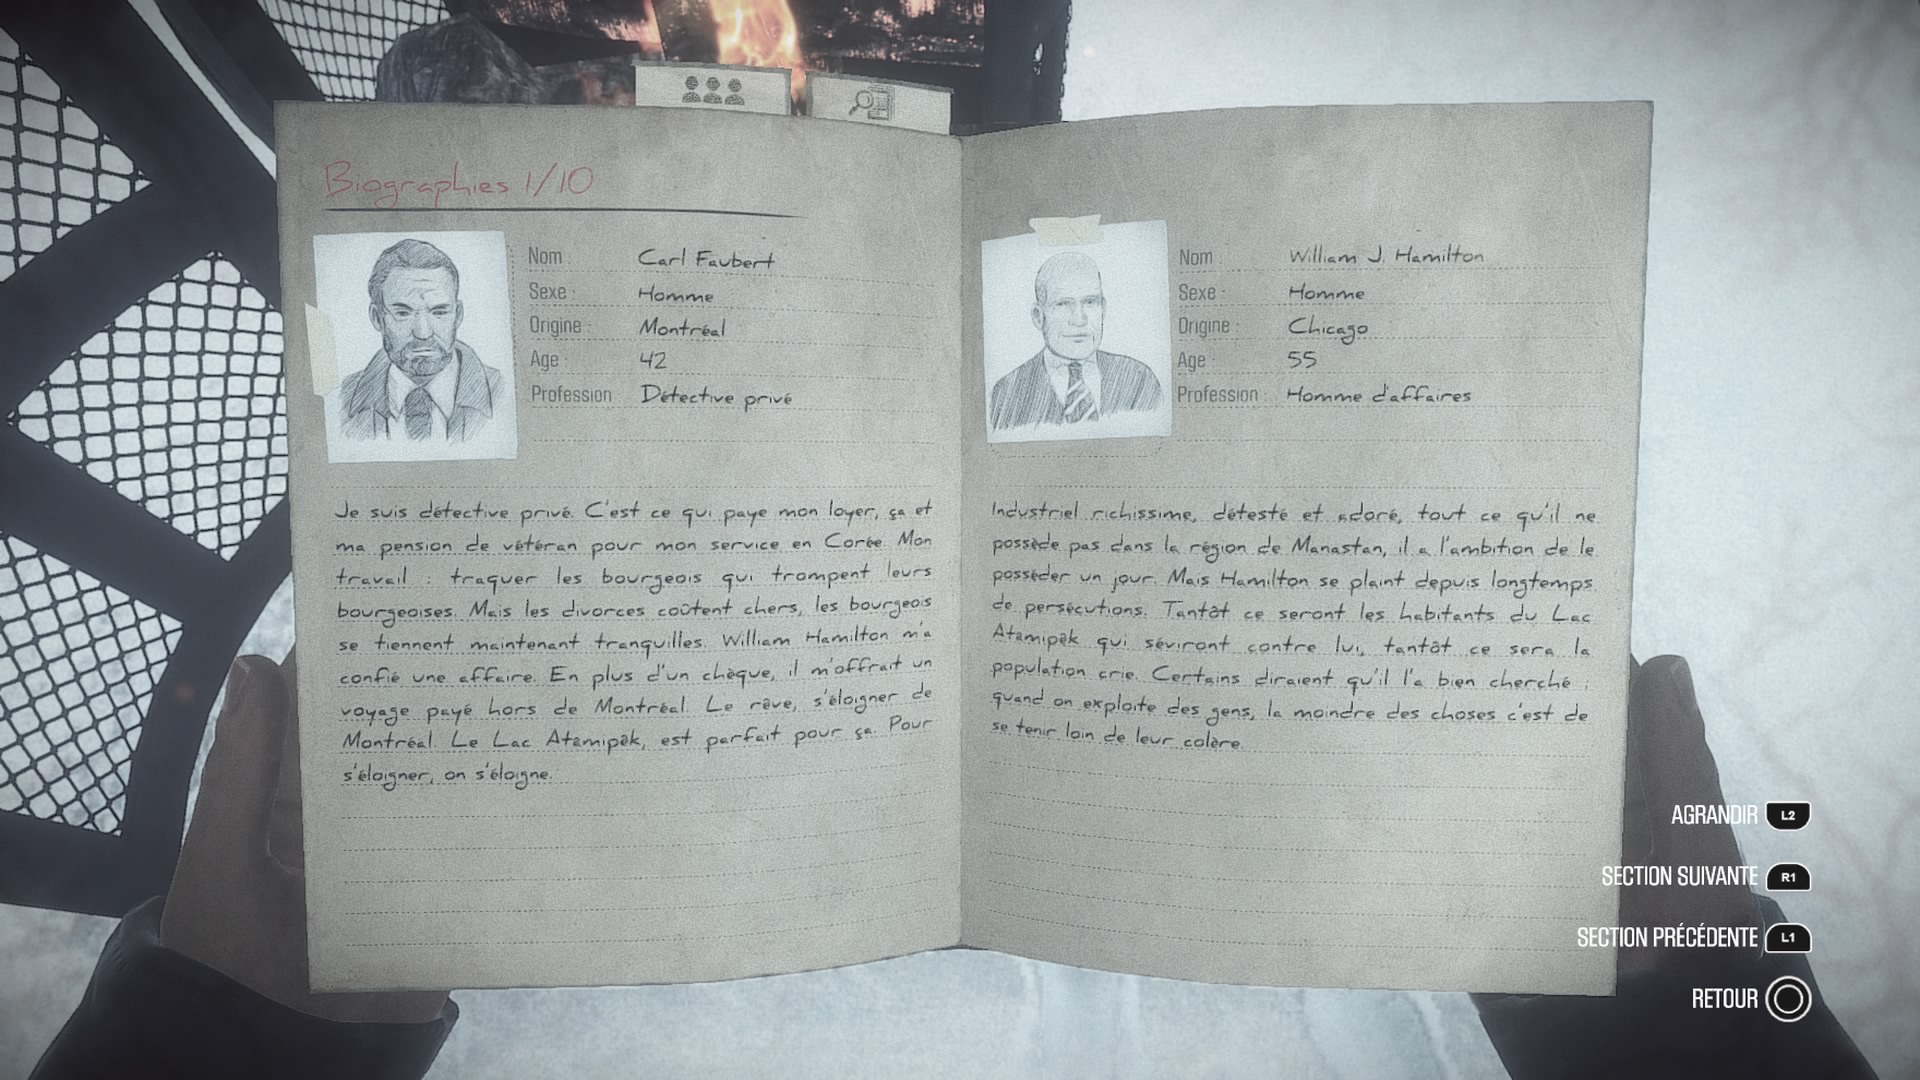 Biographies 1/10
Nom : Carl Faubert
Sexe : Homme
Origine : Montréal
Age : 42
Profession Détective privé
Je suis détective privé. C'est ce qui paye mon loyer, ça et
ma pension de vétéran pour mon service en Corée. Mon
travail : traquer les bourgeois qui trompent leurs
bourgeoises. Mais les divorces coûtent chers, les bourgeois
se tiennent maintenant tranquilles. William Hamilton m'a
confié une affaire. En plus d'un chèque, il m'offrait un
voyage payé hors de Montréal. Le rêve, s'éloigner de
Montréal. Le Lac Atamipêk, est parfait pour ça. Pour
s'éloigner, on s'éloigne.
Nom : William J. Hamilton
Sexe : Homme
Origine : Chicago
Age : 55
Profession : Homme d'affaires
Industriel richissime, détesté et adoré, tout ce qu'il ne
possède pas dans la région de Manastan, il a l'ambition de le
posséder un jour. Mais Hamilton se plaint depuis longtemps
de persécutions. Tantôt ce seront les habitants du Lac
Atamipêk qui séviront contre lui, tantôt ce sera la
population crie. Certains diraient qu'il l'a bien cherché :
quand on exploite des gens, la moindre des choses c'est de
se tenir loin de leur colère.
AGRANDIR L2
SECTION SUIVANTE R1
SECTION PRÉCÉDENTE L1
RETOUR